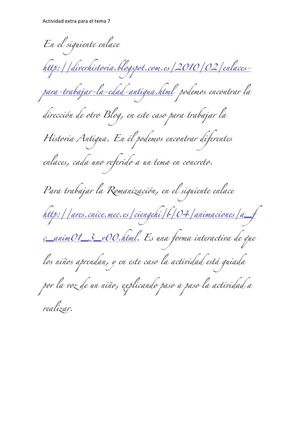 Actividad extra para el tema 7
En el siguiente enlace
http://diverhistoria.blogspot.com.es/2010/02/enlaces-
para-trabajar-la-edad-antigua.html podemos encontrar la
dirección de otro Blog, en este caso para trabajar la
Historia Antigua. En él podemos encontrar diferentes
enlaces, cada uno referido a un tema en concreto.
Para trabajar la Romanización, en el siguiente enlace
http://ares.cnice.mec.es/ciengehi/b/04/animaciones/a_f
c_anim01_3_v00.html. Es una forma interactiva de que
los niños aprendan, y en este caso la actividad está guiada
por la voz de un niño, explicando paso a paso la actividad a
realizar.